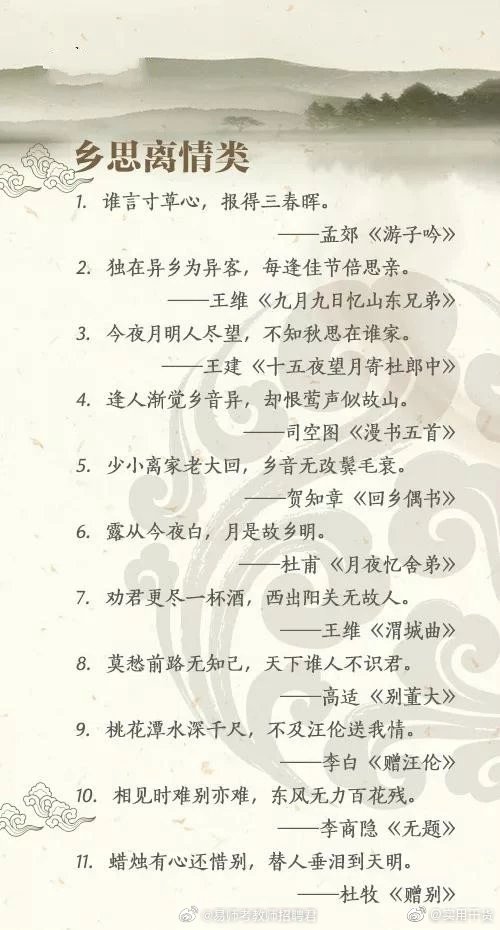 乡思离情类
1. 谁言寸草心，报得三春晖。
——孟郊《游子吟》
2. 独在异乡为异客，每逢佳节倍思亲。
——王维《九月九日忆山东兄弟》
3. 今夜月明人尽望，不知秋思在谁家。
——王建《十五夜望月寄杜郎中》
4. 逢人渐觉乡音异，却恨莺声似故山。
——司空图《漫书五首》
5. 少小离家老大回，乡音无改鬓毛衰。
——贺知章《回乡偶书》
6. 露从今夜白，月是故乡明。
——杜甫《月夜忆舍弟》
7. 劝君更尽一杯酒，西出阳关无故人。
——王维《渭城曲》
8. 莫愁前路无知己，天下谁人不识君。
——高适《别董大》
9. 桃花潭水深千尺，不及汪伦送我情。
——李白《赠汪伦》
10. 相见时难别亦难，东风无力百花残。
——李商隐《无题》
11. 蜡烛有心还惜别，替人垂泪到天明。
——杜牧《赠别》
@易师考教师招聘君 @实用干货